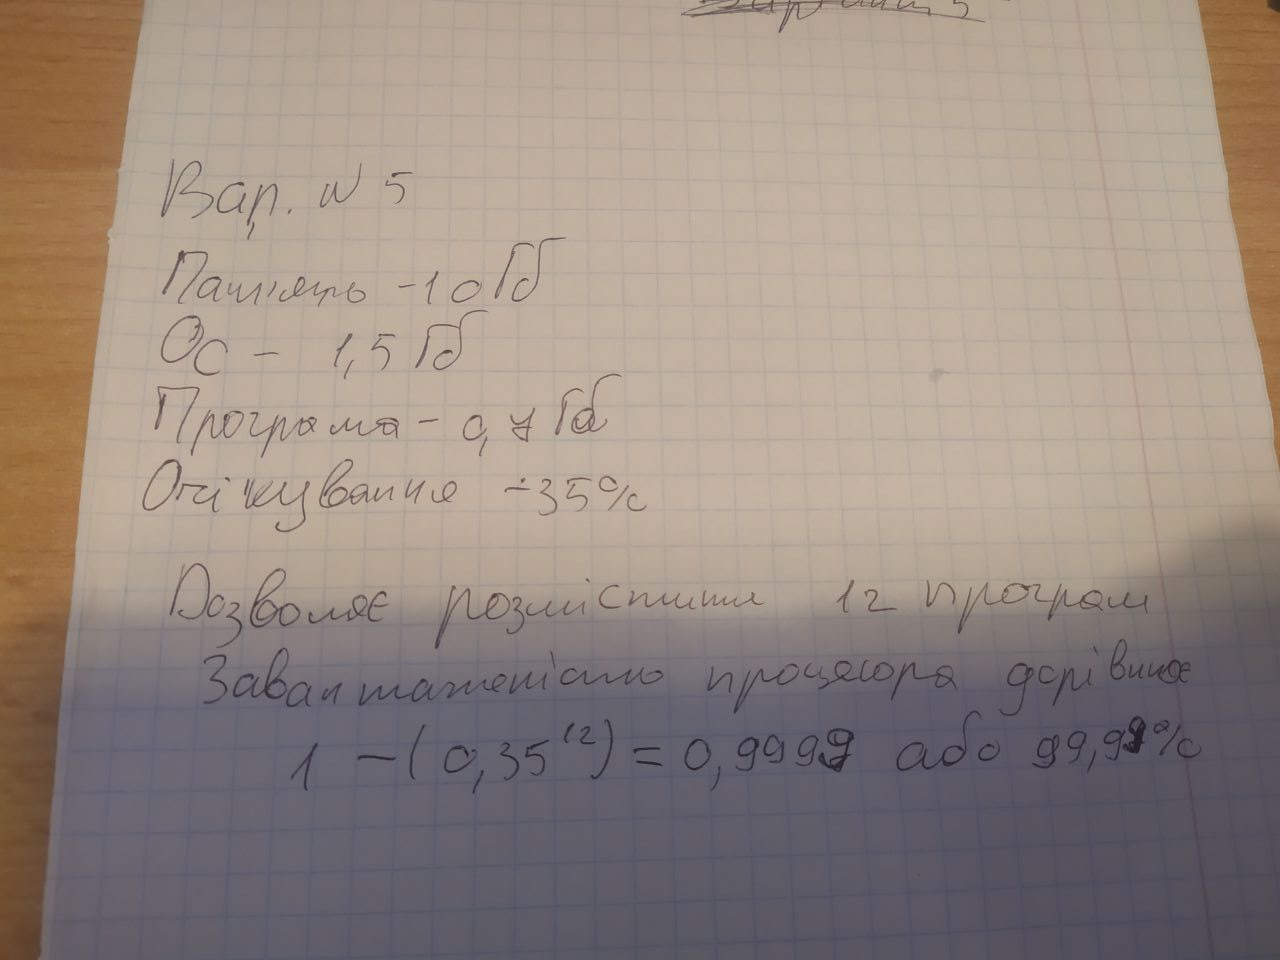 Вар. N 5
Пам'ять - 10 Гб
Ос - 1,5 Гб
Програма - 0,7 Гб
Очікування - 35%
Дозволяє розмістити 12 програм
Завантаженість процесора дорівнює
1 - (0,35^12) = 0,9999 або 99,99%